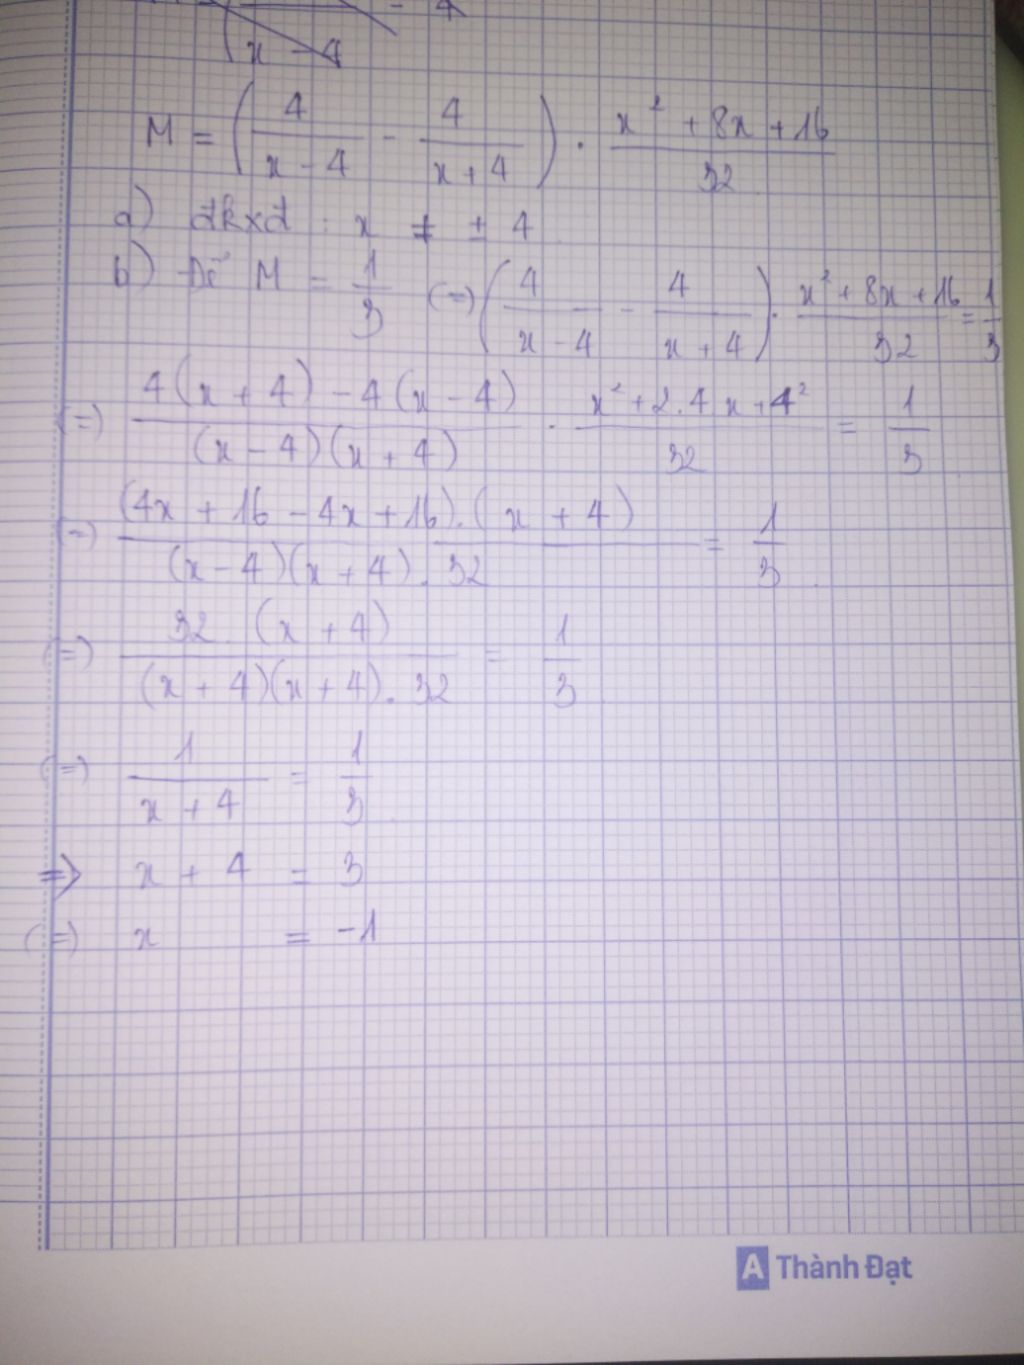 x - 4
M = ( 4/(x - 4) - 4/(x + 4) ) . (x² + 8x + 16)/32
a) đkxđ : x ≠ ± 4
b) Để M = 1/3 (=) ( 4/(x - 4) - 4/(x + 4) ) . (x² + 8x + 16)/32 = 1/3
(=) (4(x + 4) - 4(x - 4))/((x - 4)(x + 4)) . (x² + 2.4x + 4²)/32 = 1/3
(=) ((4x + 16 - 4x + 16).(x + 4))/((x - 4)(x + 4). 32) = 1/3
(=) (32 . (x + 4))/((x + 4)(x + 4). 32) = 1/3
(=) 1/(x + 4) = 1/3
=> x + 4 = 3
(=) x = -1
A Thành Đạt